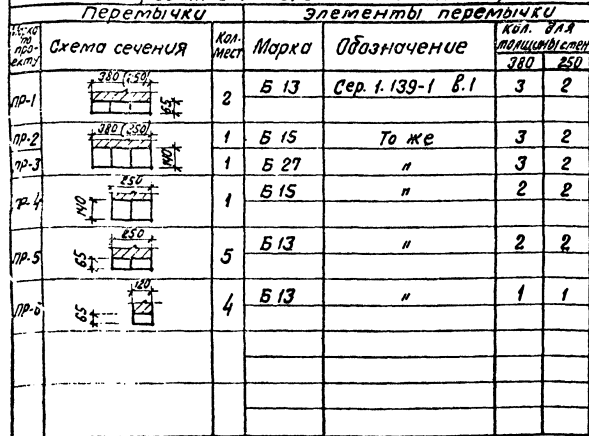 Перемычки Элементы перемычки
Марка по проекту Схема сечения Кол. мест Марка Обозначение Кол. для толщины стен
380 250
ПР-1 380 (250) 65 2 Б 13 Сер. 1.139-1 в.1 3 2
ПР-2 380 (250) 140 1 Б 15 То же 3 2
ПР-3 1 Б 27 " 3 2
ПР-4 250 140 1 Б 15 " 2 2
ПР-5 250 65 5 Б 13 " 2 2
ПР-6 120 65 4 Б 13 " 1 1